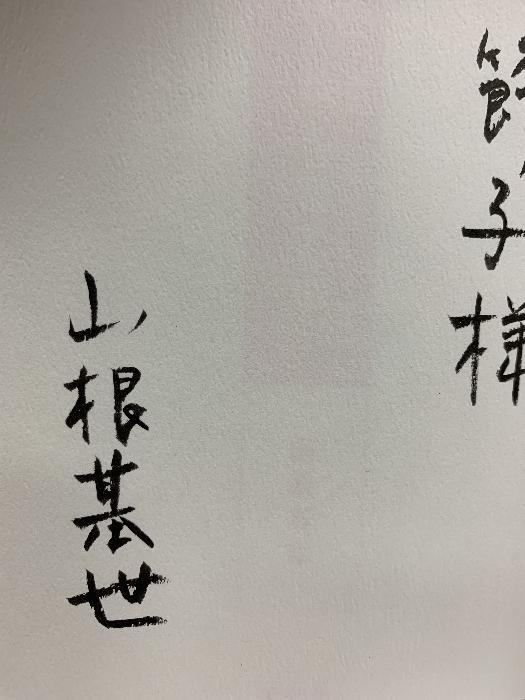 子様
山根基世